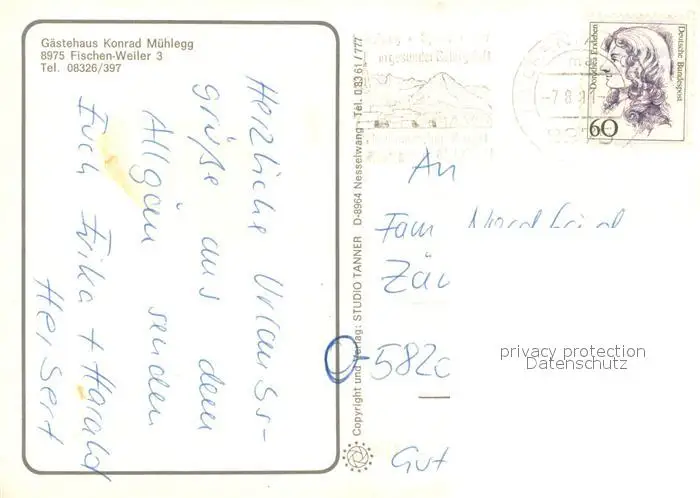 Gästehaus Konrad Mühlegg
8975 Fischen-Weiler 3
Tel. 08326/397
Herzliche Urlaubs-
grüße aus dem
Allgäu senden
Euch Erika + Harald
Herbert
Copyright und Verlag: STUDIO TANNER D-8964 Nesselwang · Tel. 0 83 61 / 777
Deutsche Bundespost
Dorothea Erxleben
60
-7.8.
An
Fam
O-582
Gut
privacy protection
Datenschutz